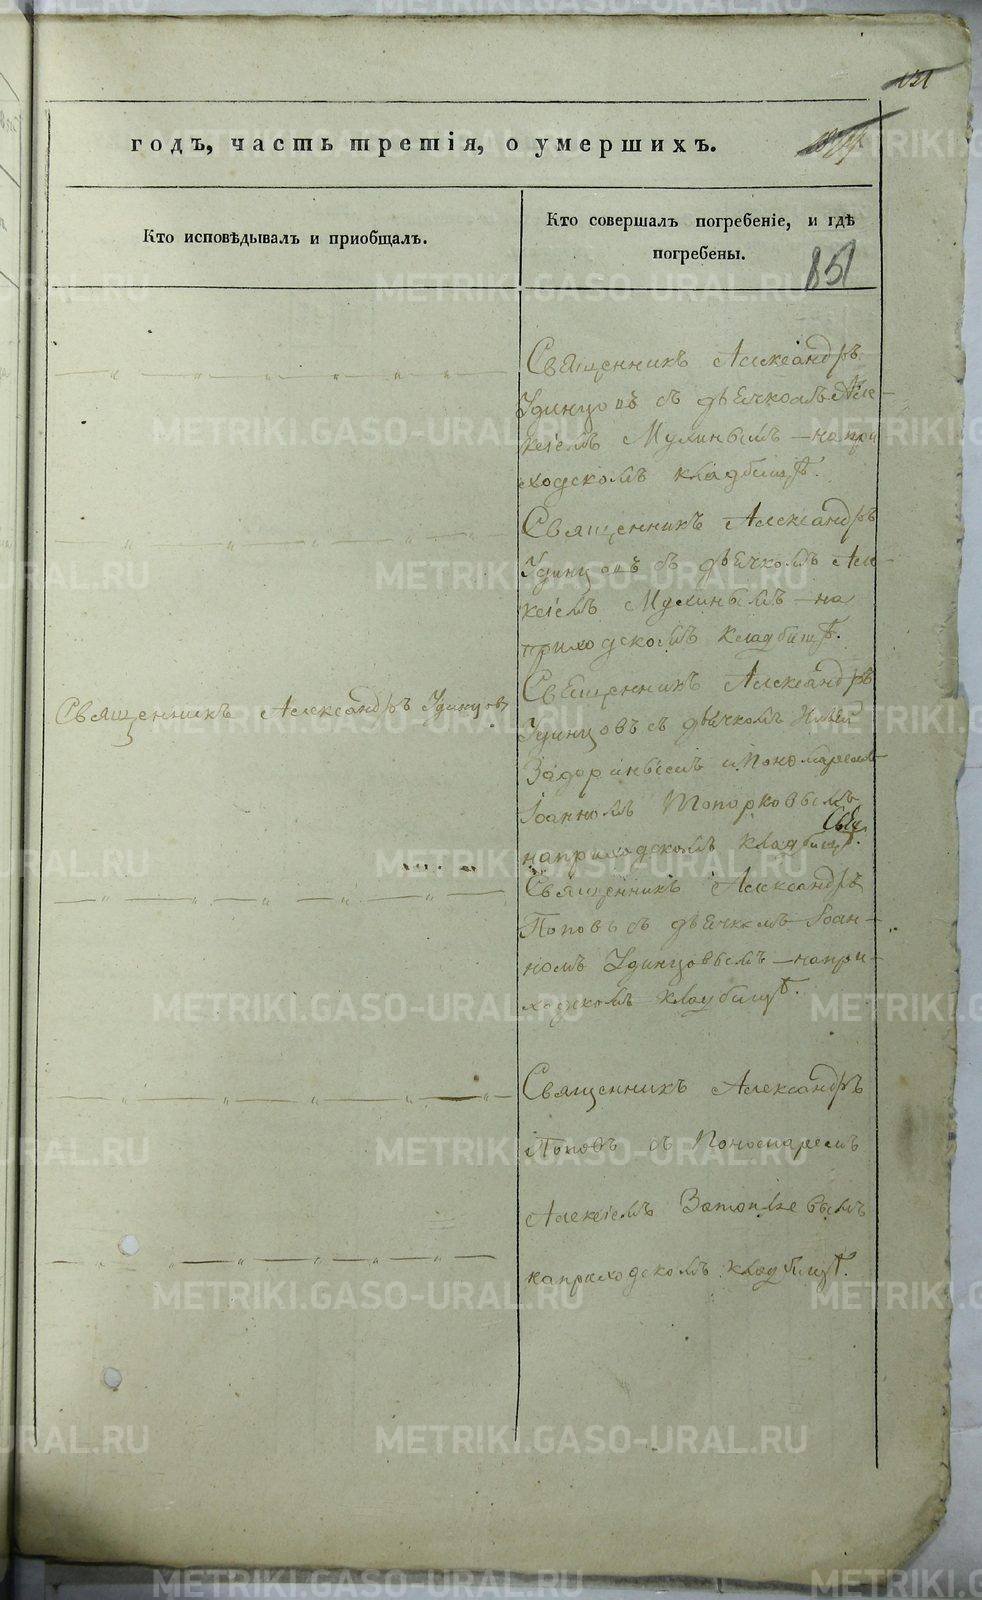 151
годъ, часть третія, о умершихъ.
Кто исповѣдывалъ и пріобщалъ.
Кто совершалъ погребеніе, и гдѣ
погребены.
851
Священникъ Александръ
Удинцовъ съ дьячкомъ Але-
ксіемъ Мухинымъ – на при
ходскомъ кладбищѣ.
Священникъ Александръ
Удинцовъ съ дьячкомъ Але-
ксіемъ Мухинымъ – на
приходскомъ кладбищѣ.
Священникъ Александръ Удинцовъ
Священникъ Александръ
Удинцовъ съ дьячкомъ
и Пономаремъ
Іоанномъ Топорковымъ
на приходскомъ кладбищѣ.
Священникъ Александръ
Поповъ съ дьячкомъ Іоан-
номъ Удинцовымъ – на при-
ходскомъ кладбищѣ.
Священникъ Александръ
Поповъ съ Пономаремъ
Алексіемъ
на приходскомъ кладбищѣ.
METRIKI.GASO-URAL.RU